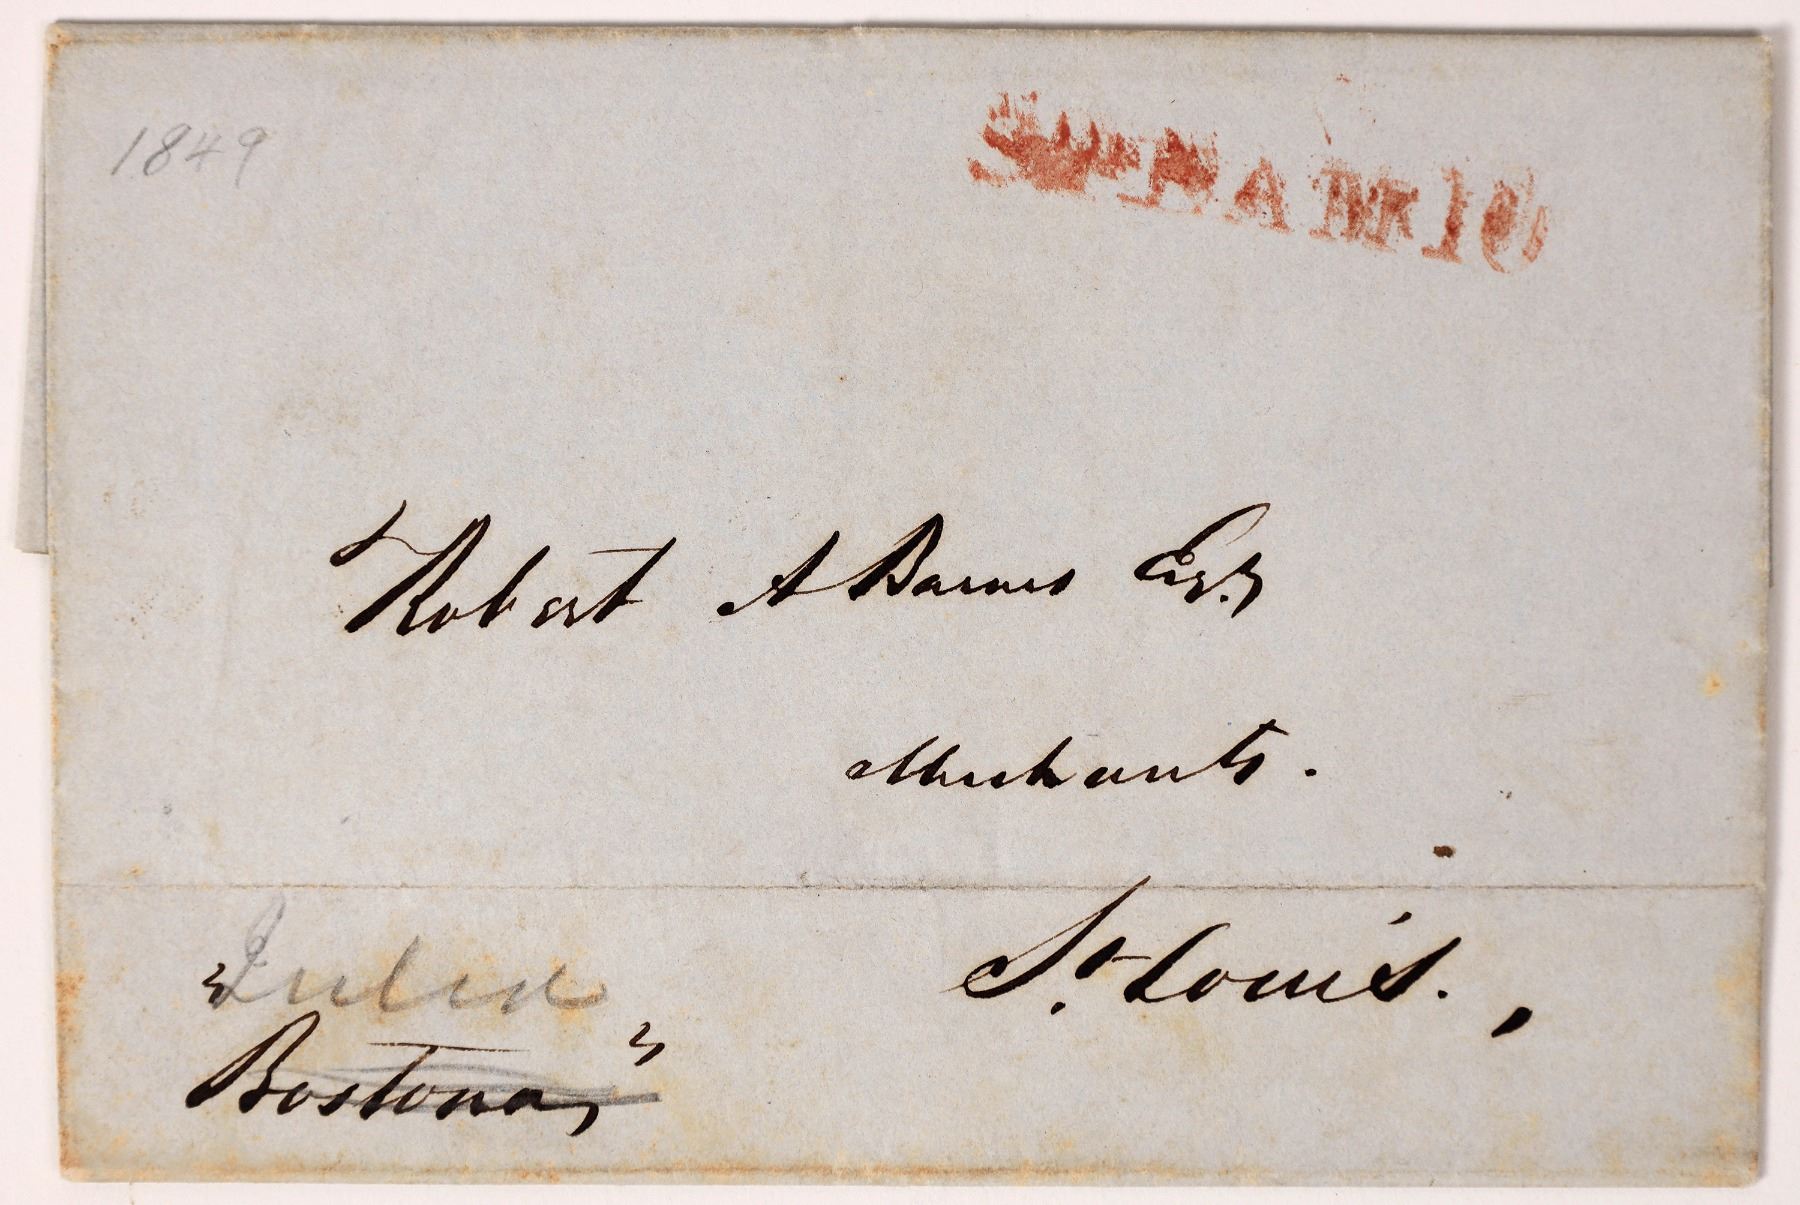 1849
STEAM 10
Robert A Barnes Esq,
Merchants.
St. Louis.
"Julia
Bostona,"